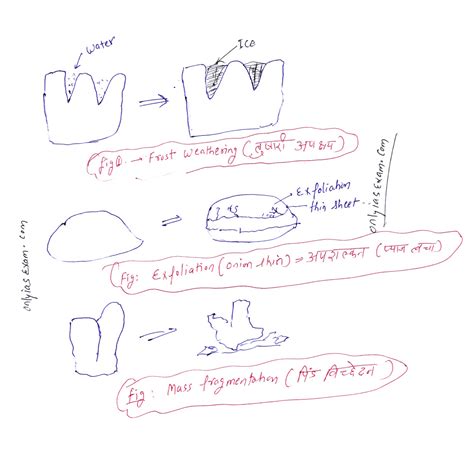 Water
Ice
fig① → Frost Weathering (तुषारी अपक्षय)
Exfoliation
thin sheet
onlyiasExam.com
onlyiasExam.com
fig: Exfoliation (onim thin) = अपशल्कन (प्याज त्वचा)
fig: Mass fragmentation (पिंड विच्छेदन)